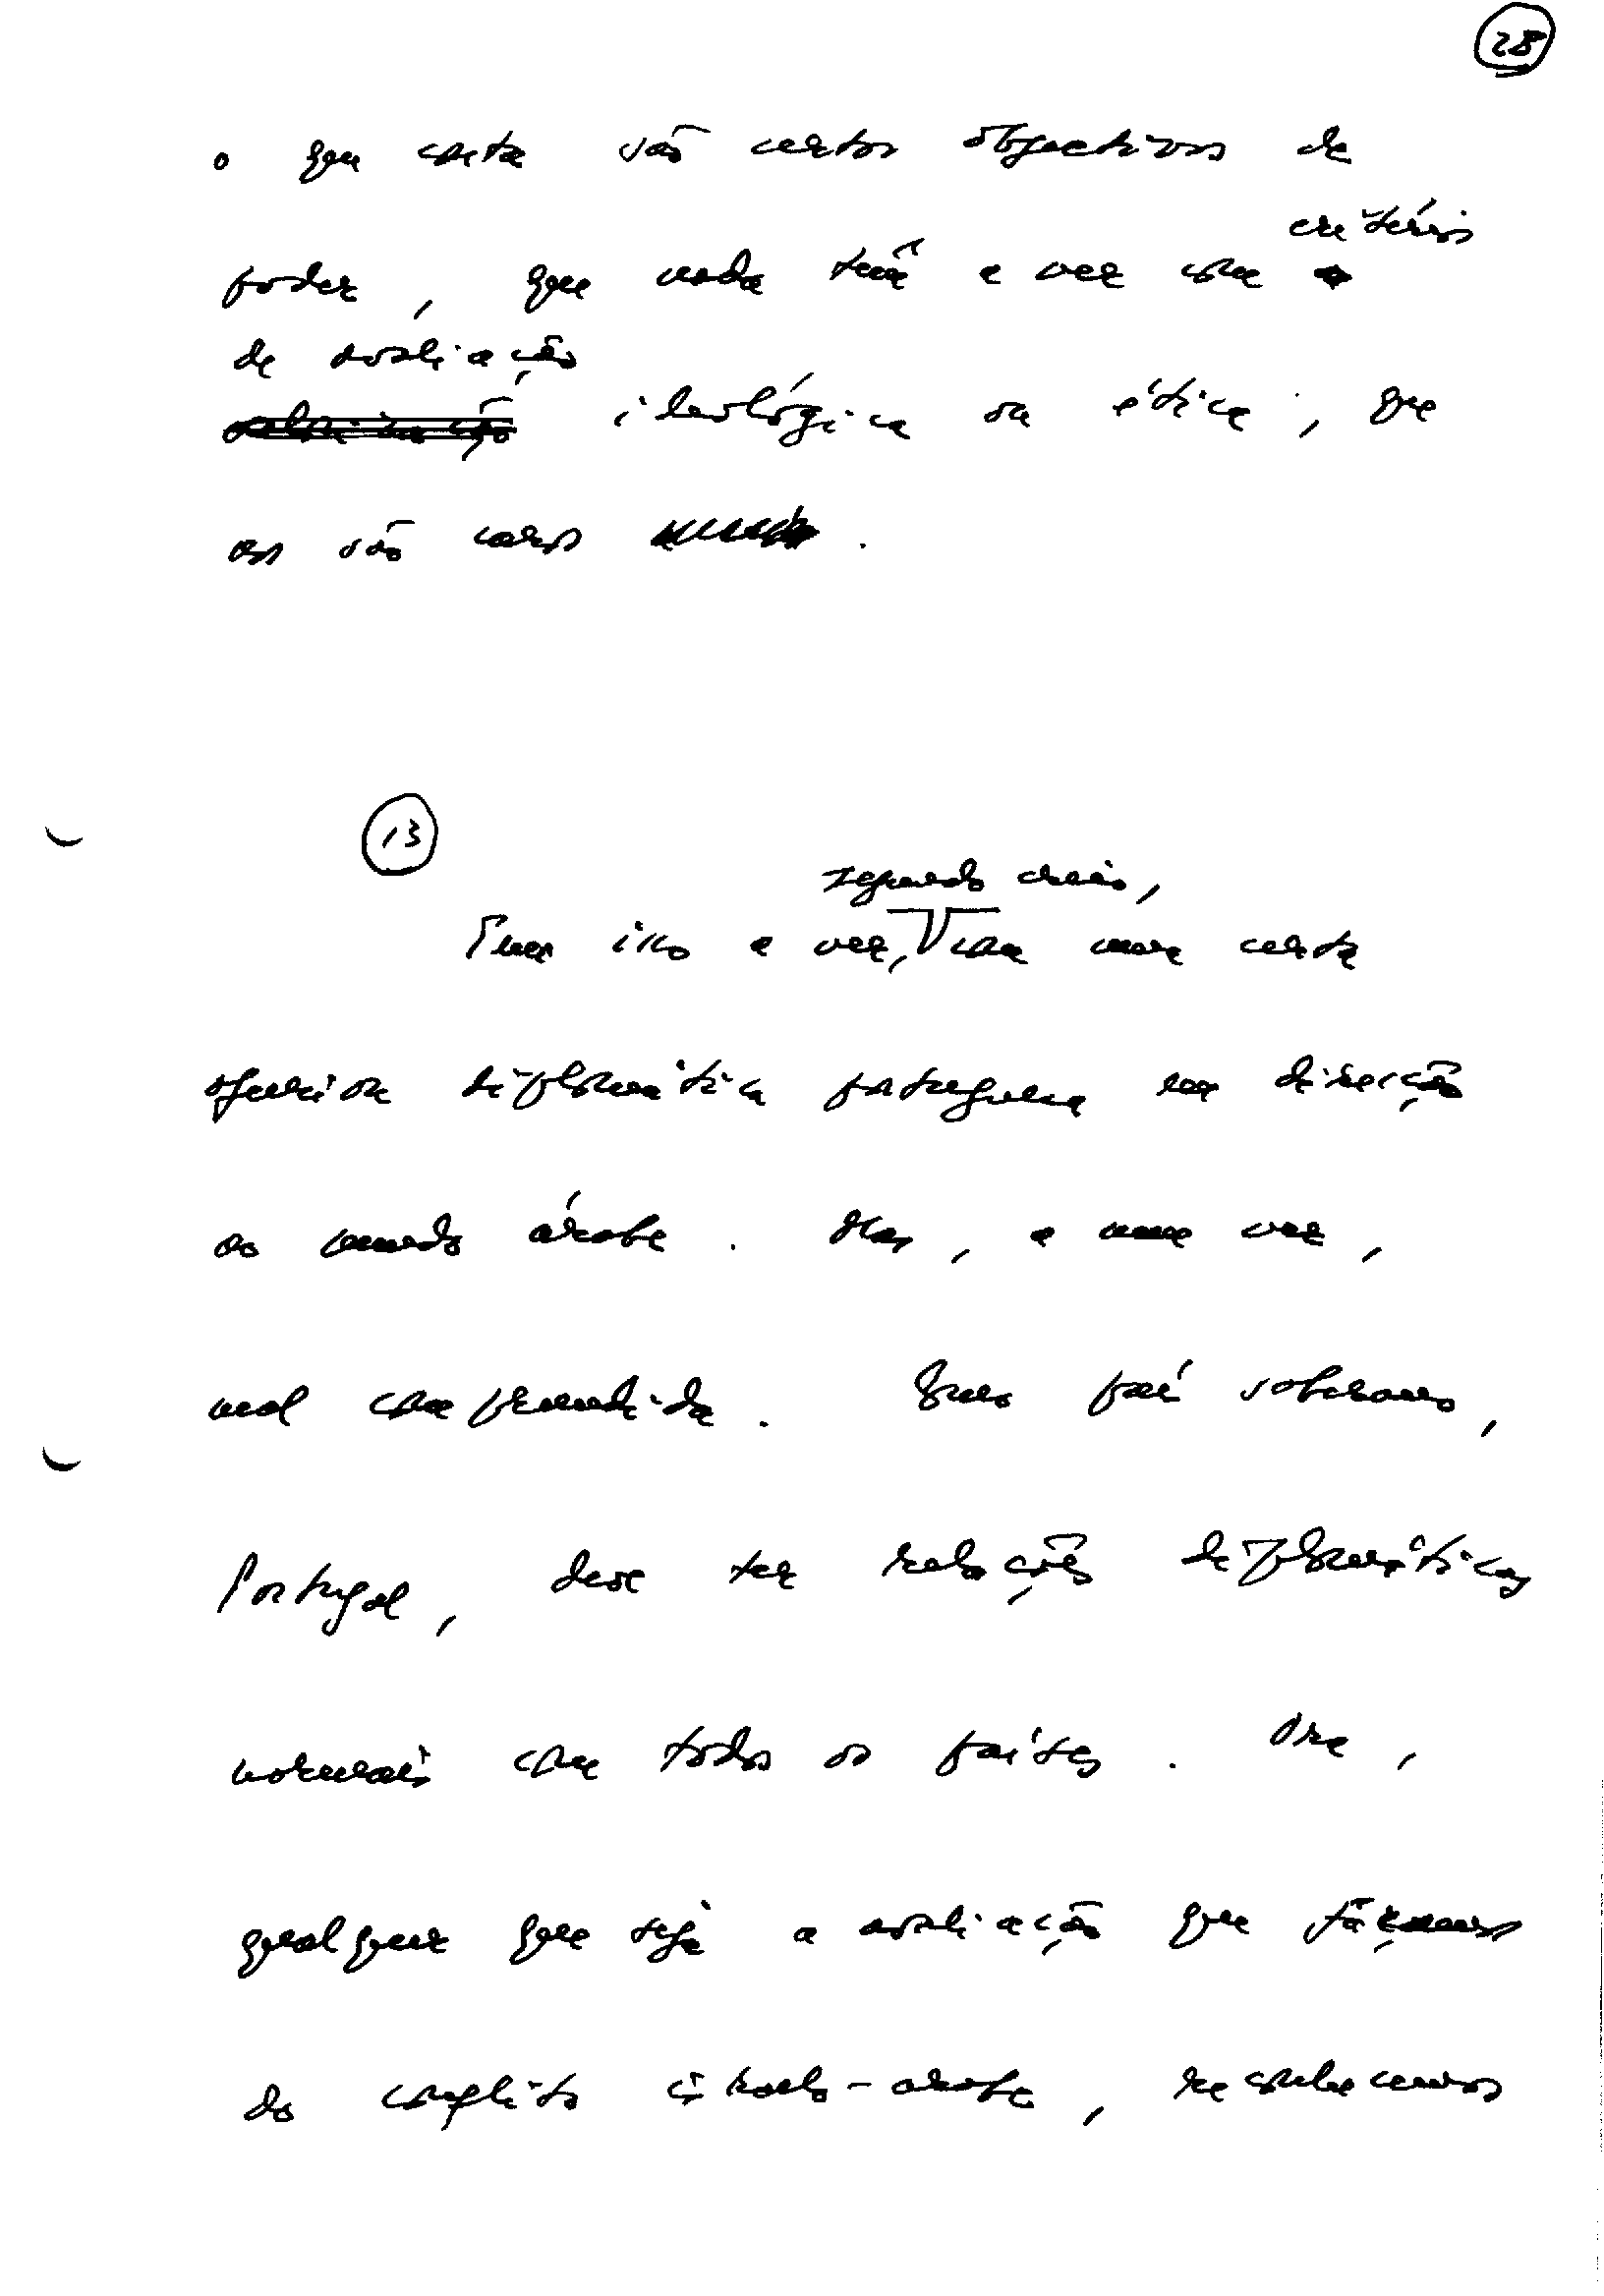 28
o que conta são certos objectivos de
critérios
poder, que nada têm a ver com
de avaliação
ideológica ou ética, que
os são caros.
13
segundo creio,
Tem isso a ver, com uma certa
ofensiva diplomática portuguesa em direcção
ao mundo árabe. Mas, a meu ver,
mal compreendida. Como país soberano,
Portugal, deve ter relações diplomáticas
normais com todos os países. Ora,
qualquer que seja a avaliação que façamos
do conflito israelo-árabe, reconhecemos